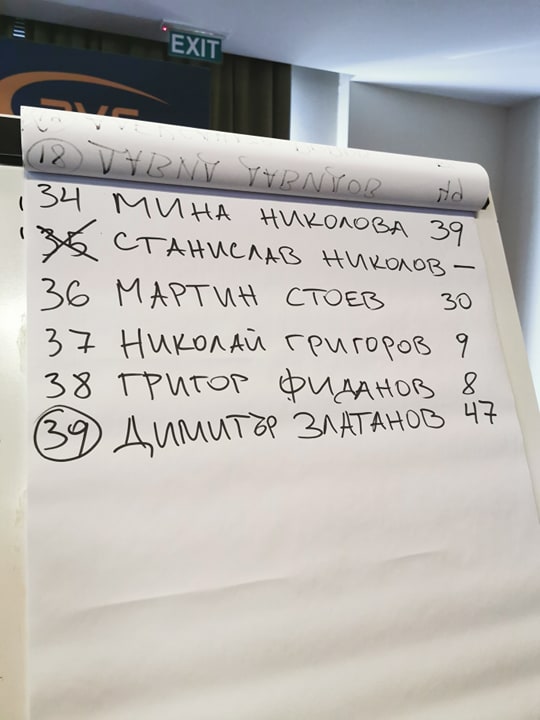 EXIT
34 МИНА НИКОЛОВА 39
35 СТАНИСЛАВ НИКОЛОВ —
36 МАРТИН СТОЕВ 30
37 НИКОЛАЙ ГРИГОРОВ 9
38 ГРИГОР ФИДАНОВ 8
39 ДИМИТЪР ЗЛАТАНОВ 47